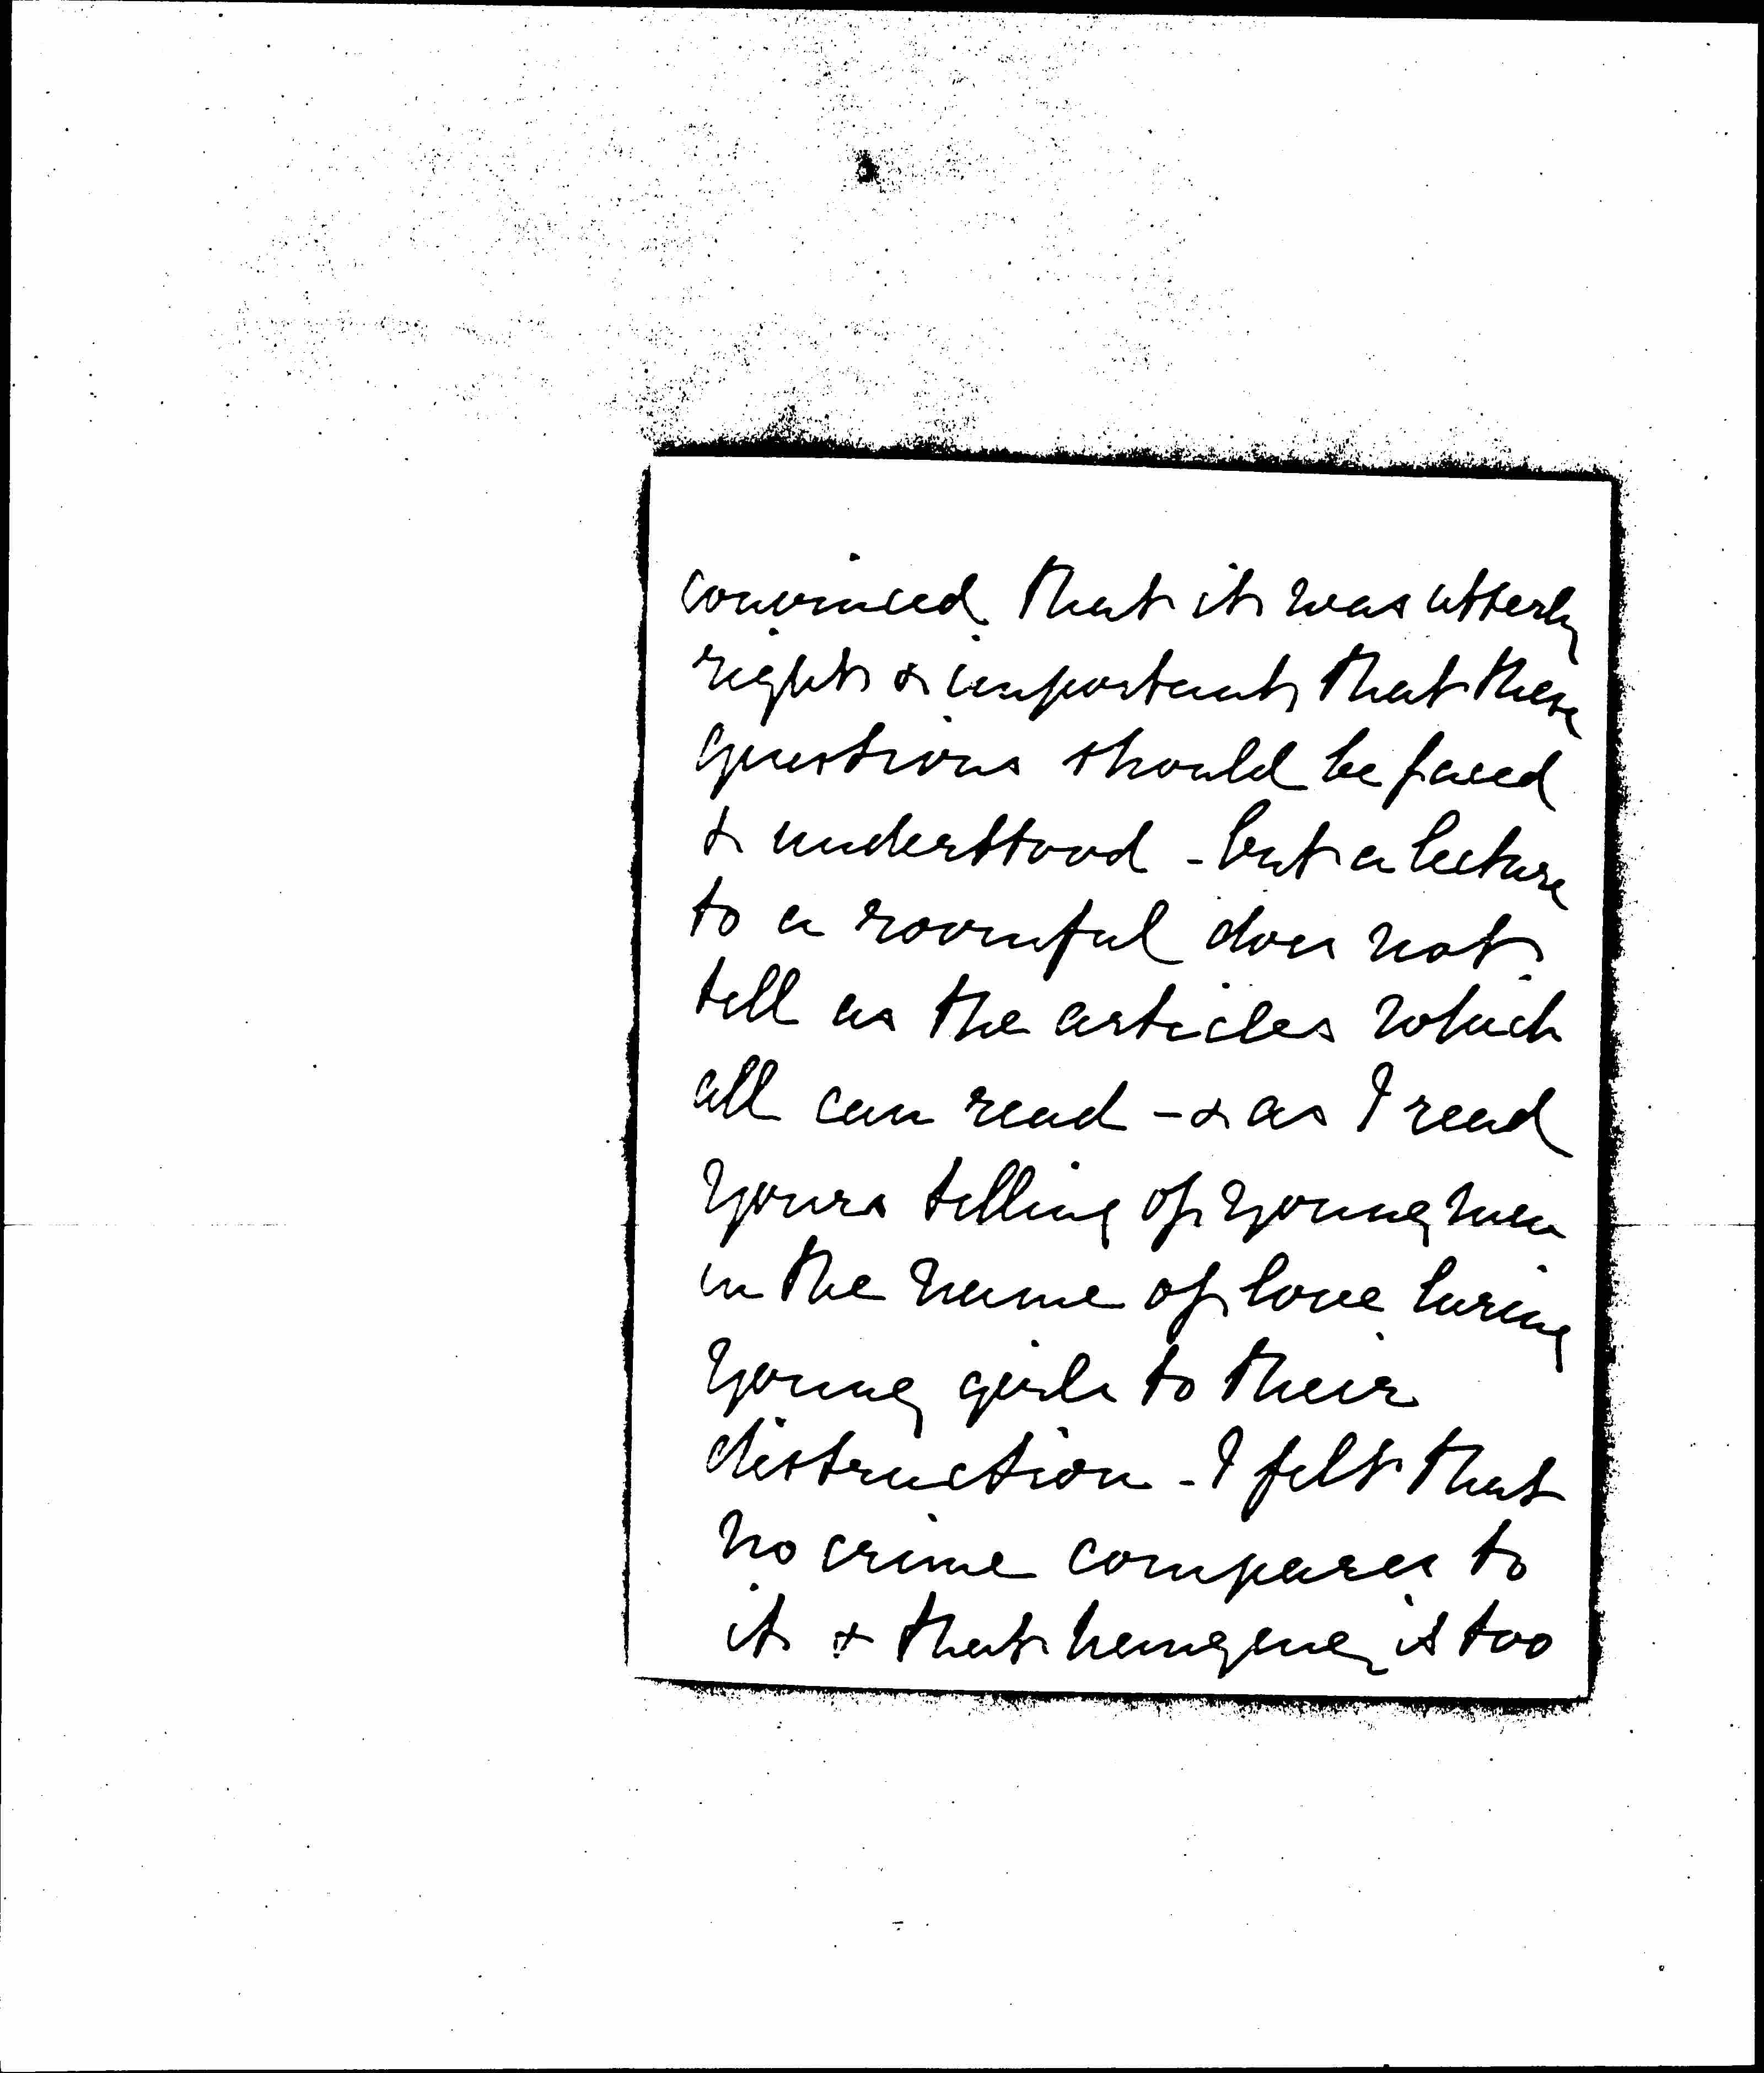 convinced that it was utterly
right & important that these
questions should be faced
& understood - but a lecture
to a roomful does not
tell as the articles which
all can read - & as I read
yours telling of young men
in the name of love luring
young girls to their
distruction - I felt that
no crime compares to
it & that hanging is too